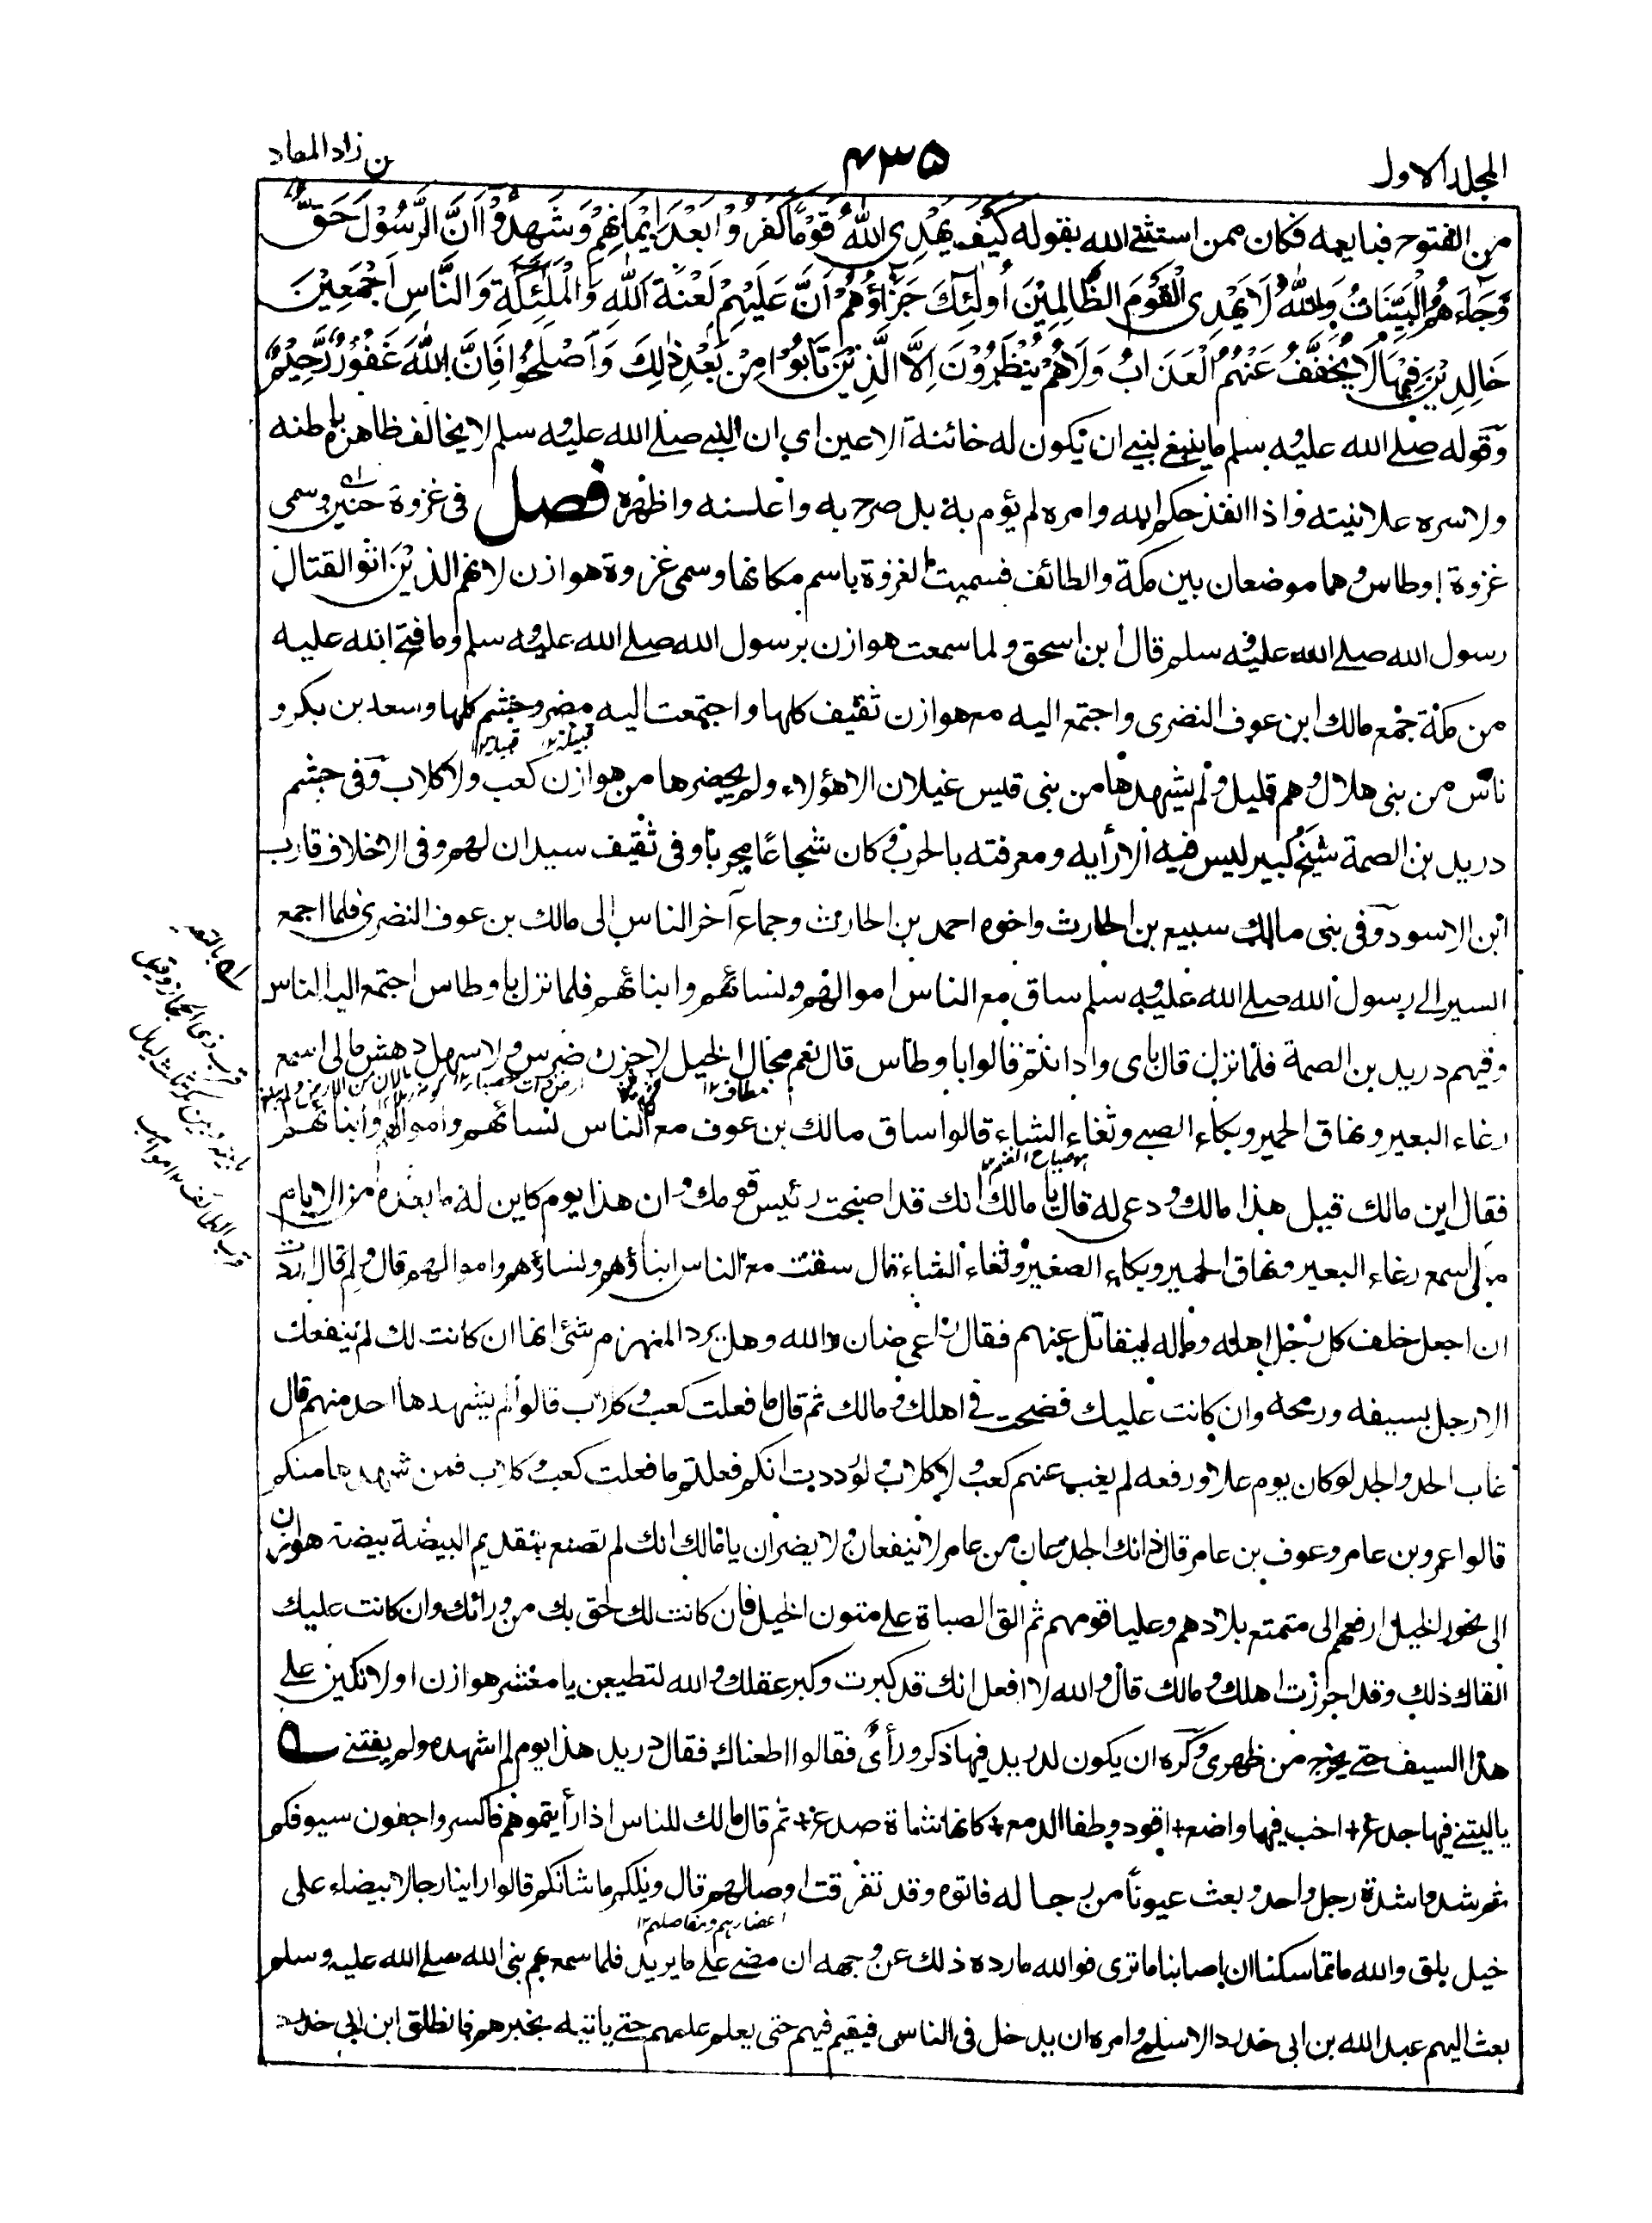 المجلد الاول
٤٣٥
من زاد المعاد
من الفتوح فبايعه فكان ممن استثنى الله بقوله كَيْفَ يَهْدِى اللهُ قَوْمًا كَفَرُوْا بَعْدَ اِيْمَانِهِمْ وَشَهِدُوْا اَنَّ الرَّسُوْلَ حَقٌّ
وَّجَآءَهُمُ الْبَيِّنَاتُ وَاللهُ لَا يَهْدِى الْقَوْمَ الظَّالِمِيْنَ اُولٰئِكَ جَزَآؤُهُمْ اَنَّ عَلَيْهِمْ لَعْنَةَ اللهِ وَالْمَلٰئِكَةِ وَالنَّاسِ اَجْمَعِيْنَ
خَالِدِيْنَ فِيْهَا لَا يُخَفَّفُ عَنْهُمُ الْعَذَابُ وَلَا هُمْ يُنْظَرُوْنَ اِلَّا الَّذِيْنَ تَابُوْا مِنْ بَعْدِ ذٰلِكَ وَاَصْلَحُوْا فَاِنَّ اللهَ غَفُوْرٌ رَّحِيْمٌ
وقوله صلے الله عليه وسلم ما ينبغ لنبي ان يكون له خائنة الاعين اي ان النبي صلے الله عليه وسلم لا يخالف ظاهره باطنه
ولا سره علانيته واذا انفذ حكم الله وامره لم يؤم به بل صرح به واعلنه واظهره فصل فى غزوة حنين وسمى
غزوة اوطاس وهما موضعان بين مكة والطائف فسميت الغزوة باسم مكانها وسمى غزوة هوازن لانهم الذين اتوا لقتال
رسول الله صلے الله عليه وسلم قال ابن اسحق ولما سمعت هوازن برسول الله صلے الله عليه وسلم وما فتح الله عليه
من مكة جمع مالك ابن عوف النضرى واجتمع اليه مع هوازن ثقيف كلها واجتمعت اليه مضر وجشم كلها وسعد بن بكر و
قبيلة ١٢ قبيلة ١٢
ناس من بنى هلال وهم قليل ولم يشهدها من بنى قيس غيلان الا هؤلاء ولم يحضرها من هوازن كعب ولا كلاب وفى جشم
دريد بن الصمة شيخ كبير ليس فيه الا رأيه ومعرفته بالحرب وكان شجاعا مجربا وفى ثقيف سيدان لهم وفى الاخلاف قارب
ابن الاسود وفى بنى مالك سبيع بن الحارث واخوه احمد بن الحارث وجماع آخر الناس الى مالك بن عوف النضرى فلما اجمع
السير الے رسول الله صلے الله عليه وسلم ساق مع الناس اموالهم ونسائهم وابنائهم فلما نزل باوطاس اجتمع اليه الناس
وفيهم دريد بن الصمة فلما نزل قال باى واد انتم قالوا باوطاس قال نعم مجال الخيل لا حزن ضرس ولا سهل دهش مالى اسمع
مطاف ١٢
رغاء البعير ونهاق الحمير وبكاء الصبے وثغاء الشاء قالوا ساق مالك بن عوف مع الناس نسائهم واموالهم وابنائهم
صياح الغنم ١٢
فقال اين مالك قيل هذا مالك ودعى له قال يا مالك انك قد اصبحت رئيس قومك وان هذا يوم كاين له ما بعده من الايام
مالى اسمع رغاء البعير ونهاق الحمير وبكاء الصغير وثغاء الشاء قال سقت مع الناس ابناؤهم ونساؤهم واموالهم قال ولم قال اردت
ان اجعل خلف كل رجل اهله وماله ليقاتل عنهم فقال راعى ضان والله وهل يرد المنهزم شئ انها ان كانت لك لم ينفعك
الا رجل بسيفه ورمحه وان كانت عليك فضحت فے اهلك ومالك ثم قال ما فعلت كعب وكلاب قالوا لم يشهدها احد منهم قال
غاب الحد والجد لو كان يوم علاء ورفعه لم يغب عنهم كعب ولا كلاب ولوددت انكم فعلتم ما فعلت كعب وكلاب فمن شهدها منكم
قالوا عمرو بن عامر وعوف بن عامر قال ذانك الجذعان من عامر لا ينفعان ولا يضران يا مالك انك لم تصنع بتقديم البيضة بيضة هوازن
الى نحور الخيل ارفعهم الى متمتع بلادهم وعليا قومهم ثم الق الصباة علے متون الخيل فان كانت لك لحق بك من ورائك وان كانت عليك
القاك ذلك وقد احرزت اهلك ومالك قال والله لا افعل انك قد كبرت وكبر عقلك والله لتطيعن يا معشر هوازن او لاتكين علے
هذا السيف حتے يخرج من ظهرى وكره ان يكون لدريد فيها ذكر ورأى فقالوا اطعناك فقال دريد هذا يوم لم اشهده ولم يفتنے
ياليتنے فيها جذع + اخب فيها واضع + اقود وطفا الدمع + كانها شاة صدع + ثم قال مالك للناس اذا رأيتموهم فاكسروا جفون سيوفكم
ثم شدوا شدة رجل واحد وبعث عيونا من رجاله فاتوه وقد تفرقت اوصالهم قال ويلكم ما شانكم قالوا راينا رجالا بيضاء على
اعضاءهم ومفاصلهم ١٢
خيل بلق والله ما تماسكنا ان اصابنا ما ترى فوالله ما رده ذلك عن وجهه ان مضے علے ما يريد فلما سمع بهم نبى الله صلے الله عليه وسلم
بعث اليهم عبد الله بن ابى حدرد الاسلمے وامره ان يدخل فى الناس فيقيم فيهم حتى يعلم علمهم حتے ياتيه بخبرهم فانطلق ابن ابى حدرد